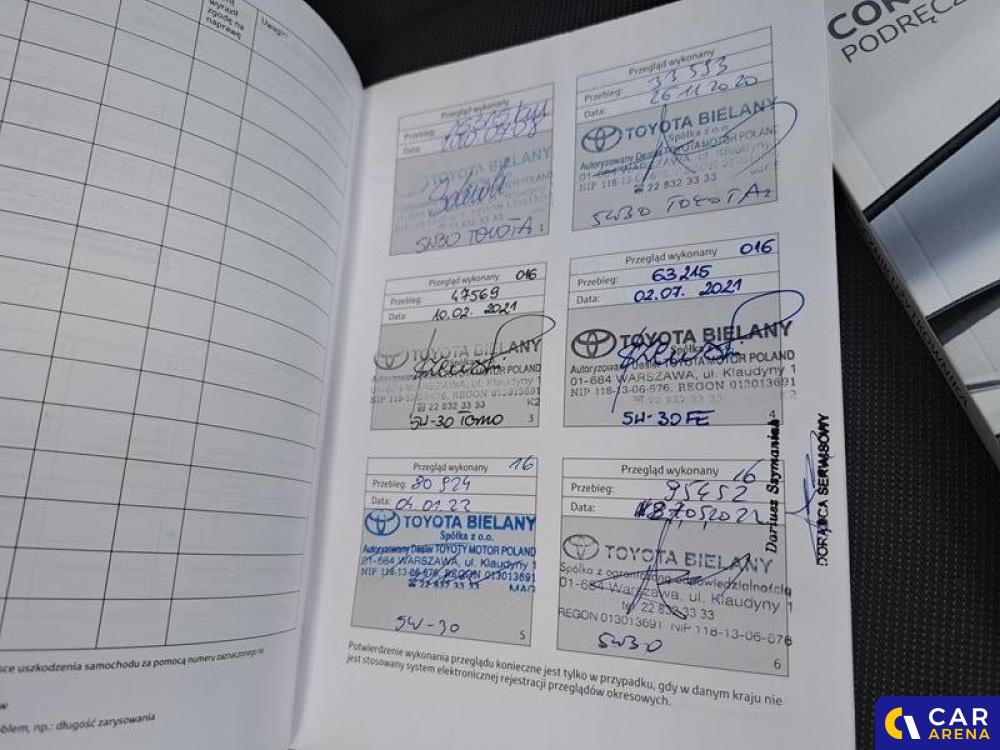 wyraził
zgodę na
naprawę
Uwagi
Przegląd wykonany
Przebieg:
Data:
TOYOTA BIELANY
MOTOR POLAND
22 832 33 33
5W30 TOYOTA
1
Przegląd wykonany
Przebieg: 33 593
Data: 26 11 2020
TOYOTA BIELANY
Spółka z o.o.
Autoryzowany Dealer TOYOTA MOTOR POLAND
01-684 WARSZAWA, ul. Klaudyny 1
NIP 118-13-06-676, REGON
22 832 33 33
5W30 TOYOTA
2
Przegląd wykonany 016
Przebieg: 47569
Data: 10.02. 2021
TOYOTA BIELANY
MOTOR POLAND
01-684 WARSZAWA, ul. Klaudyny 1
NIP 118-13-06-676, REGON 013013691
22 832 33 33
K2
5W-30
3
Przegląd wykonany 016
Przebieg: 63215
Data: 02.07. 2021
TOYOTA BIELANY
Spółka z o.o.
Autoryzowany Dealer TOYOTA MOTOR POLAND
01-684 WARSZAWA, ul. Klaudyny 1
NIP 118-13-06-676, REGON 013013691
22 832 33 33
K2
5W-30 FE
4
Przegląd wykonany 16
Przebieg: 80 924
Data: 04.01.22
TOYOTA BIELANY
Spółka z o.o.
Autoryzowany Dealer TOYOTY MOTOR POLAND
01-684 WARSZAWA, ul. Klaudyny 1
NIP 118-13-06-676, REGON 013013691
22 832 33 33
MAG
5W-30
5
Przegląd wykonany 16
Przebieg: 95452
Data:
TOYOTA BIELANY
Spółka z ograniczoną odpowiedzialnością
01-684 Warszawa, ul. Klaudyny 1
tel. 22 832 33 33
REGON 013013691 NIP 118-13-06-676
5W30
6
Dariusz Szymaniak
DORADCA SERWISOWY
Potwierdzenie wykonania przeglądu konieczne jest tylko w przypadku, gdy w danym kraju nie
jest stosowany system elektronicznej rejestracji przeglądów okresowych.
sce uszkodzenia samochodu za pomocą numeru zaznaczonego na
w
oblem, np.: długość zarysowania
COR
PODRĘCZ
UŻYTKOWNIKA
CAR
ARENA